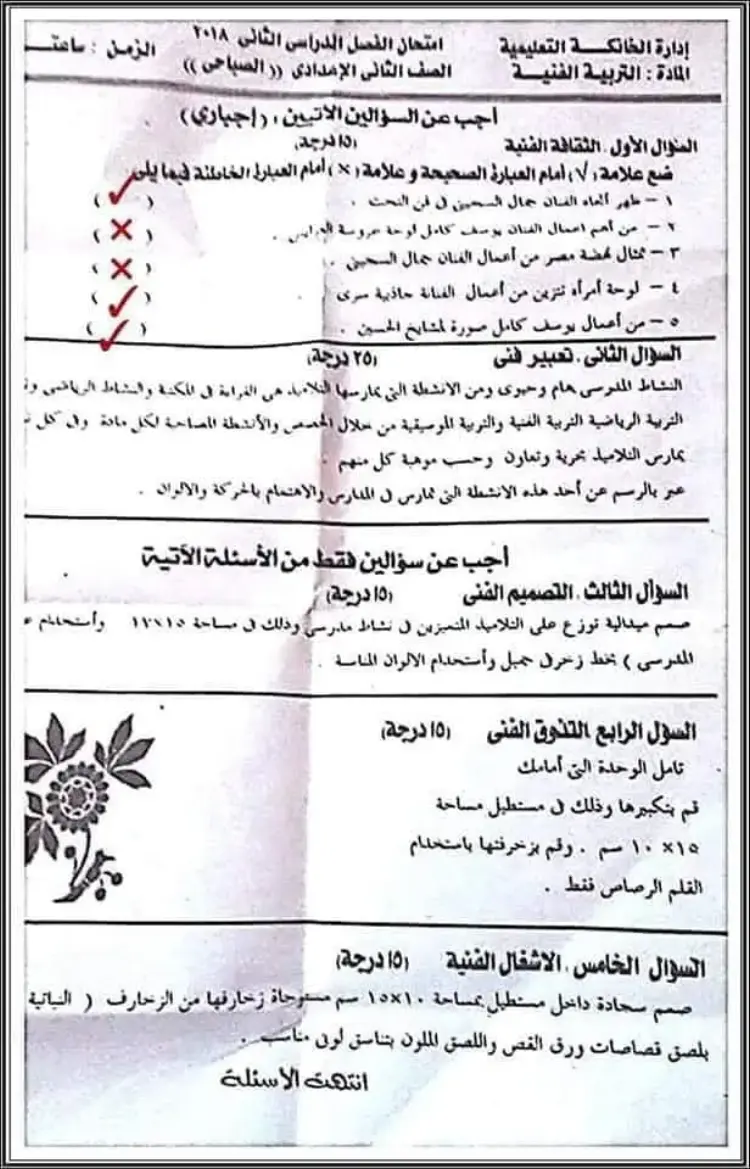 إدارة الخانكة التعليمية
امتحان الفصل الدراسى الثانى ٢٠١٨
الزمن : ساعتـ
المادة : التربية الفنية
الصف الثانى الإعدادى (( الصباحى ))
أجب عن السؤالين الآتيين : ( إجبارى )
السؤال الأول . الثقافة الفنية (١٥ درجة)
ضع علامة (√) أمام العبارة الصحيحة و علامة (×) أمام العبارة الخاطئة فيما يلى
١ – ظهر اتجاه الفنان جمال السجينى فى فن النحت . ( ✓ )
٢ – من أهم أعمال الفنان يوسف كامل لوحة عروسة . ( × )
٣ – تمثال نهضة مصر من أعمال الفنان جمال السجينى . ( × )
٤ – لوحة امرأة تتزين من أعمال الفنانة جاذبية سرى . ( ✓ )
٥ – من أعمال يوسف كامل صورة لمشايخ الحسين . ( ✓ )
السؤال الثانى . تعبير فنى (٢٥ درجة)
النشاط المدرسى هام وحيوى ومن الانشطة التى يمارسها التلاميذ هى القراءة فى المكتبة والنشاط الرياضى وفـ
التربية الرياضية التربية الفنية والتربية الموسيقية من خلال الحصص والأنشطة المصاحبة لكل مادة وفى كل نـ
يمارس التلاميذ بحرية وتعاون وحسب موهبة كل منهم .
عبر بالرسم عن أحد هذه الانشطة التى تمارس فى المدارس والاهتمام بالحركة والالوان .
أجب عن سؤالين فقط من الأسئلة الآتية
السؤال الثالث . التصميم الفنى (١٥ درجة)
صمم ميدالية توزع على التلاميذ المتميزين فى نشاط مدرسى وذلك فى مساحة ١٥×١٢ وأستخدام عـ
المدرسى ) بخط زخرفى جميل وأستخدام الالوان المناسبة .
السؤل الرابع التذوق الفنى (١٥ درجة)
تامل الوحدة التى أمامك
قم بتكبيرها وذلك فى مستطيل مساحة
١٥ × ١٠ سم . وقم بزخرفتها باستخدام
القلم الرصاص فقط .
السؤال الخامس . الاشغال الفنية (١٥ درجة)
صمم سجادة داخل مستطيل بمساحة ١٠×١٥ سم مستوحاة زخارفها من الزخارف ( النباتية
بلصق قصاصات ورق القص واللصق الملون بتناسق لونى مناسب .
انتهت الاسئلة